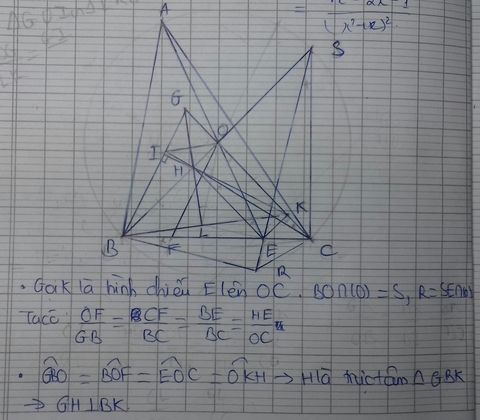 = x² - 2x - 1
(x²+1x)²
A
S
G
O
I
H
K
L
B
F
E
C
R
• Gọi K là hình chiếu E lên OC. BO∩(O) = S, R = SE∩(O)
Ta có OF/GB = CF/BC = BE/BC = HE/OC
• GBO = BOF = EOC = OKH → H là trực tâm Δ GBK
⇒ GH⊥BK